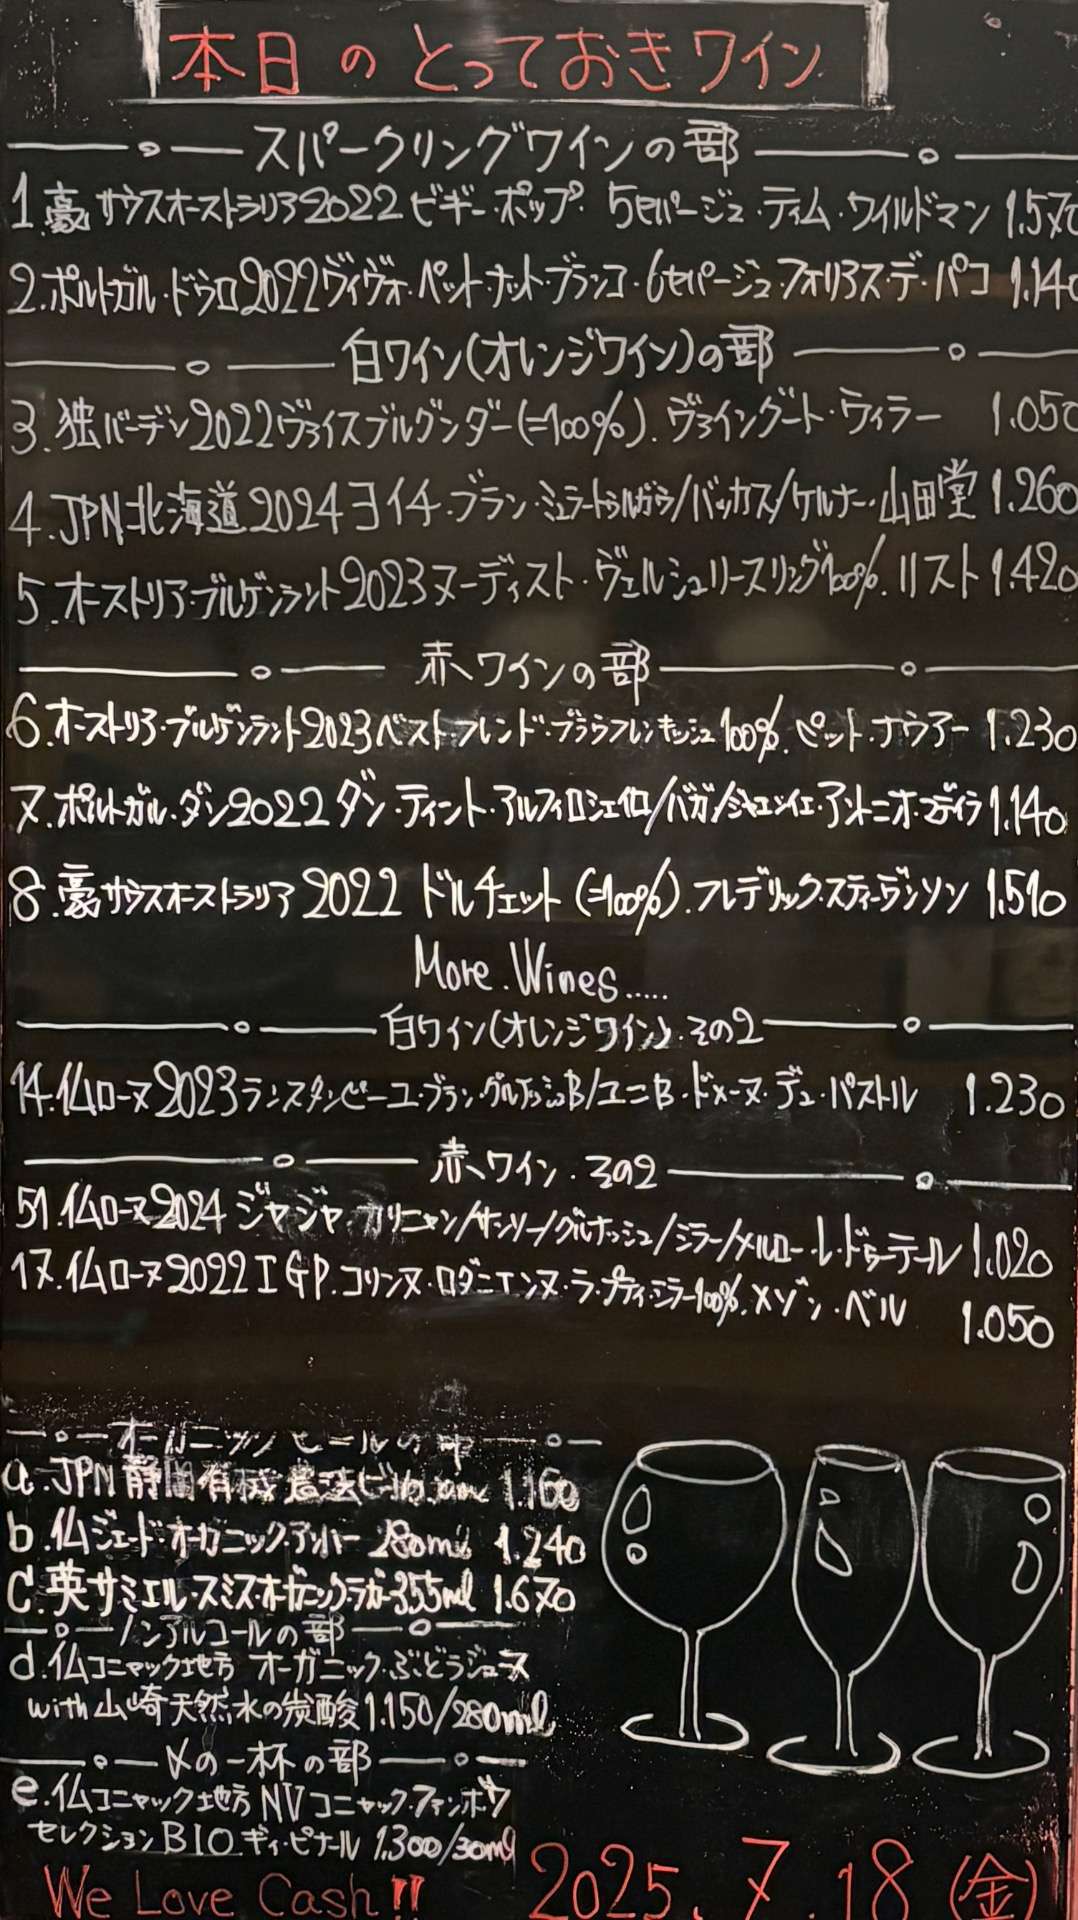 本日のとっておきワイン
スパークリングワインの部
1.豪サウスオーストラリア2022ビギー・ポップ・5セパージュ・ティム・ワイルドマン 1.570
2.ポルトガル・ドウロ2022ヴィヴォ・ペット・ナット・ブランコ・6セパージュ・フォリアス・デ・バコ 1.140
白ワイン(オレンジワイン)の部
3.独バーデン2022ヴァイスブルグンダー(=100%).ヴァイングート・ヴィラー 1.050
4.JPN北海道2024ヨイチ・ブラン・ミュラートゥルガウ/バッカス/ケルナー・山田堂 1.260
5.オーストリア・ブルゲンラント2023ヌーディスト・ヴェルシュリースリング100%.リスト 1.420
赤ワインの部
6.オーストリア・ブルゲンラント2023ベストフレンド・ブラウフレンキッシュ100%.ピット・ナウアー 1.230
7.ポルトガル・ダン2022ダン・ティント・アルフィロシェイロ/バガ/ジャエン/イエ・アントニオ・マデイラ 1.140
8.豪サウスオーストラリア2022 ドルチェット(=100%).フレデリック・スティーヴンソン 1.510
More.Wines.....
白ワイン(オレンジワイン).その2
14.仏ローヌ2023ランスタンピーユ・ブラン・グルナッシュB/ユニB・ドメーヌ・デュ・パストル 1.230
赤ワイン.その2
51.仏ローヌ2024ジャジャ・カリニャン/サンソー/グルナッシュ/シラー/メルロー・レ・ドゥーテール 1.020
17.仏ローヌ2022IGP.コリンヌ・ロダニエンヌ・ラ・プティ・シラー100%.メゾン・ベル
1.050
オーガニックビールの部
a.JPN静岡有機農法ビール 1.160
b.仏ジェード・オーガニック・アンバー 280ml 1.240
C.英サミエル・スミス・オーガニックラガー355ml 1.670
ノンアルコールの部
d.仏コニャック地方 オーガニック・ぶどうジュース
with山崎天然水の炭酸1.150/280ml
〆の一杯の部
e.仏コニャック地方NVコニャック・ファンボワ
セレクションBIOギィ・ピナール 1.300/30ml
We Love Cash!! 2025.7.18(金)